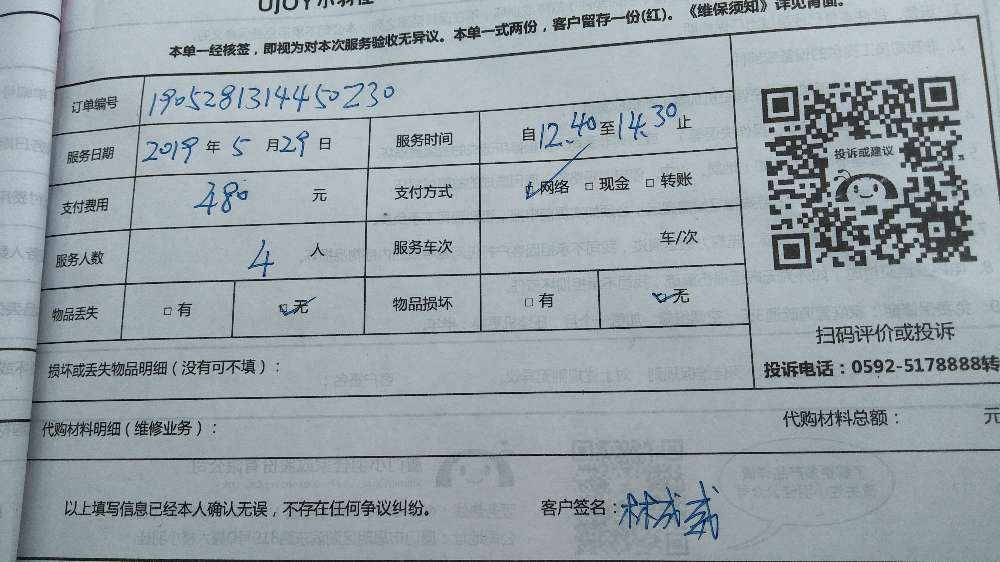 UJOY小羽佳
本单一经核签，即视为对本次服务验收无异议。本单一式两份，客户留存一份(红)。《维保须知》详见背面。
订单编号 1905281314450230
服务日期 2019 年 5 月 29 日 服务时间 自12.40至14.30止
支付费用 480 元 支付方式 ☑网络 □现金 □转账
服务人数 4 人 服务车次 车/次
物品丢失 □有 ☑无 物品损坏 □有 ☑无
投诉或建议
扫码评价或投诉
投诉电话：0592-5178888转
损坏或丢失物品明细（没有可不填）：
代购材料明细（维修业务）： 代购材料总额： 元
以上填写信息已经本人确认无误，不存在任何争议纠纷。 客户签名：林成威